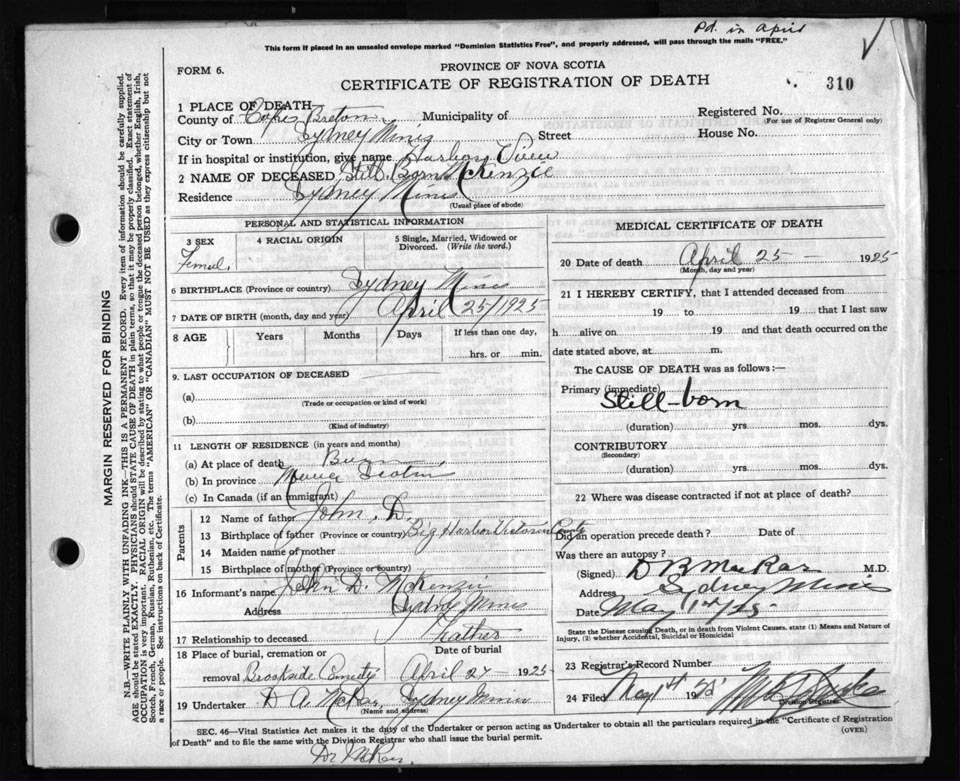 Pd. in April
This form if placed in an unsealed envelope marked "Dominion Statistics Free", and properly addressed, will pass through the mails "FREE."
FORM 6.
PROVINCE OF NOVA SCOTIA
CERTIFICATE OF REGISTRATION OF DEATH
310
1 PLACE OF DEATH
County of Cape Breton Municipality of
Registered No.
(For use of Registrar General only)
City or Town Sydney Mines Street
House No.
If in hospital or institution, give name Harbor View
2 NAME OF DECEASED Still Born McKenzie
Residence Sydney Mines
(Usual place of abode)
PERSONAL AND STATISTICAL INFORMATION
3 SEX 4 RACIAL ORIGIN 5 Single, Married, Widowed or Divorced. (Write the word.)
Femal.
6 BIRTHPLACE (Province or country) Sydney Mines
7 DATE OF BIRTH (month, day and year) April 25/1925
8 AGE Years Months Days If less than one day,
hrs. or min.
9. LAST OCCUPATION OF DECEASED
(a)
(Trade or occupation or kind of work)
(b)
(Kind of industry)
11 LENGTH OF RESIDENCE (in years and months)
(a) At place of death
(b) In province Nova Scotia
(c) In Canada (if an immigrant)
Parents
12 Name of father John. D.
13 Birthplace of father (Province or country) Big Harbor Victoria County
14 Maiden name of mother
15 Birthplace of mother (Province or country)
16 Informant's name John D. McKenzie
Address Sydney Mines
17 Relationship to deceased Feather
18 Place of burial, cremation or Date of burial
removal Brookside Cemety April 27 1925
19 Undertaker D A McRae, Sydney Mines
(Name and address)
MEDICAL CERTIFICATE OF DEATH
20 Date of death April 25 — 1925
(Month, day and year)
21 I HEREBY CERTIFY, that I attended deceased from
19 to 19 that I last saw
h alive on 19 and that death occurred on the
date stated above, at m.
The CAUSE OF DEATH was as follows:—
Primary (immediate)
Still-born
(duration) yrs. mos. dys.
CONTRIBUTORY
(Secondary)
(duration) yrs. mos. dys.
22 Where was disease contracted if not at place of death?
Did an operation precede death? Date of
Was there an autopsy?
(Signed) D B MacRae M.D.
Address Sydney Mines
Date May 1st/25
State the Disease causing Death, or in death from Violent Causes. state (1) Means and Nature of Injury, (2) whether Accidental, Suicidal or Homicidal
23 Registrar's Record Number
24 Filed May 1st 1925
SEC. 46—Vital Statistics Act makes it the duty of the Undertaker or person acting as Undertaker to obtain all the particulars required in the "Certificate of Registration
of Death" and to file the same with the Division Registrar who shall issue the burial permit.
(OVER)
Dr McRae.
MARGIN RESERVED FOR BINDING
N.B.—WRITE PLAINLY WITH UNFADING INK—THIS IS A PERMANENT RECORD. Every item of information should be carefully supplied.
AGE should be stated EXACTLY. PHYSICIANS should STATE CAUSE OF DEATH in plain terms, so that it may be properly classified. Exact statement of
OCCUPATION is very important. RACIAL ORIGIN will be described by stating to what people or tongue the deceased person belonged, whether English, Irish,
Scotch, French, German, Russian, Ruthenian, etc. The terms "AMERICAN" OR "CANADIAN" MUST NOT BE USED as they express citizenship but not
a race or people. See instructions on back of Certificate.